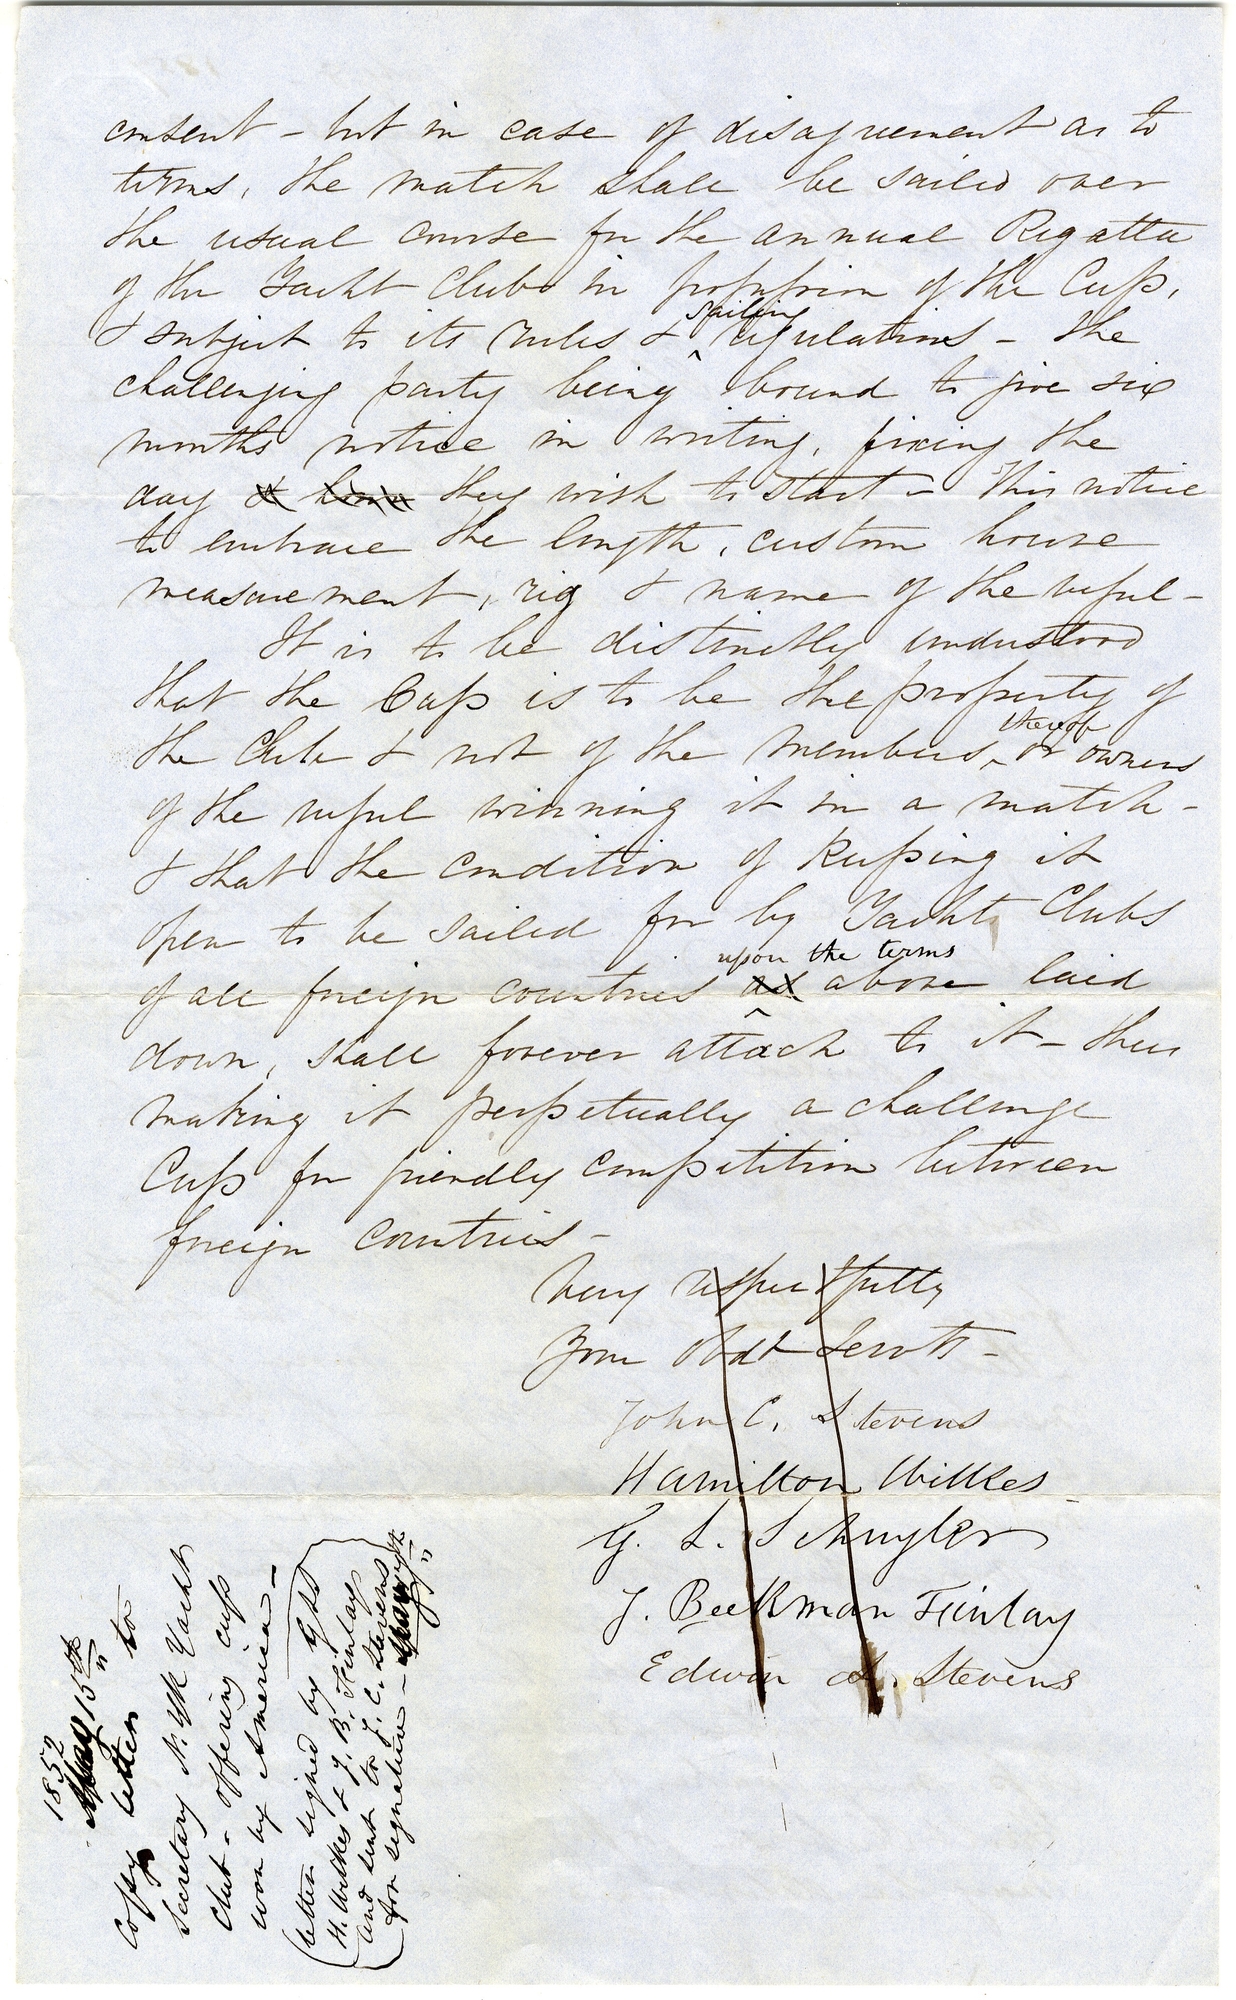 consent – but in case of disagreement as to
terms, the match shall be sailed over
the usual course for the annual Regatta
of the Yacht Club in possession of the Cup,
& subject to its rules & sailing regulations – the
challenging party being bound to give six
months notice in writing, fixing the
day & hour they wish to start – This notice
to embrace the length, custom house
measurement, rig & name of the vessel –
It is to be distinctly understood
that the Cup is to be the property of
the Club & not of the members thereof or owners
of the vessel winning it in a match –
& that the condition of keeping it
open to be sailed for by Yacht Clubs
of all foreign countries as upon the terms above laid
down, shall forever attach to it – thus
making it perpetually a challenge
Cup for friendly competition between
foreign countries –
Very respectfully
Your Obdt Servts –
John C. Stevens
Hamilton Wilkes
G. L. Schuyler
J. Beekman Finlay
Edwin A. Stevens
1852
May 15th
Copy letter to
Secretary N. Yk Yacht
Club – offering cup
won by America –
(letter signed by GLS
H. Wilkes & J. B. Finlay
and sent to J. C. Stevens
for signature –